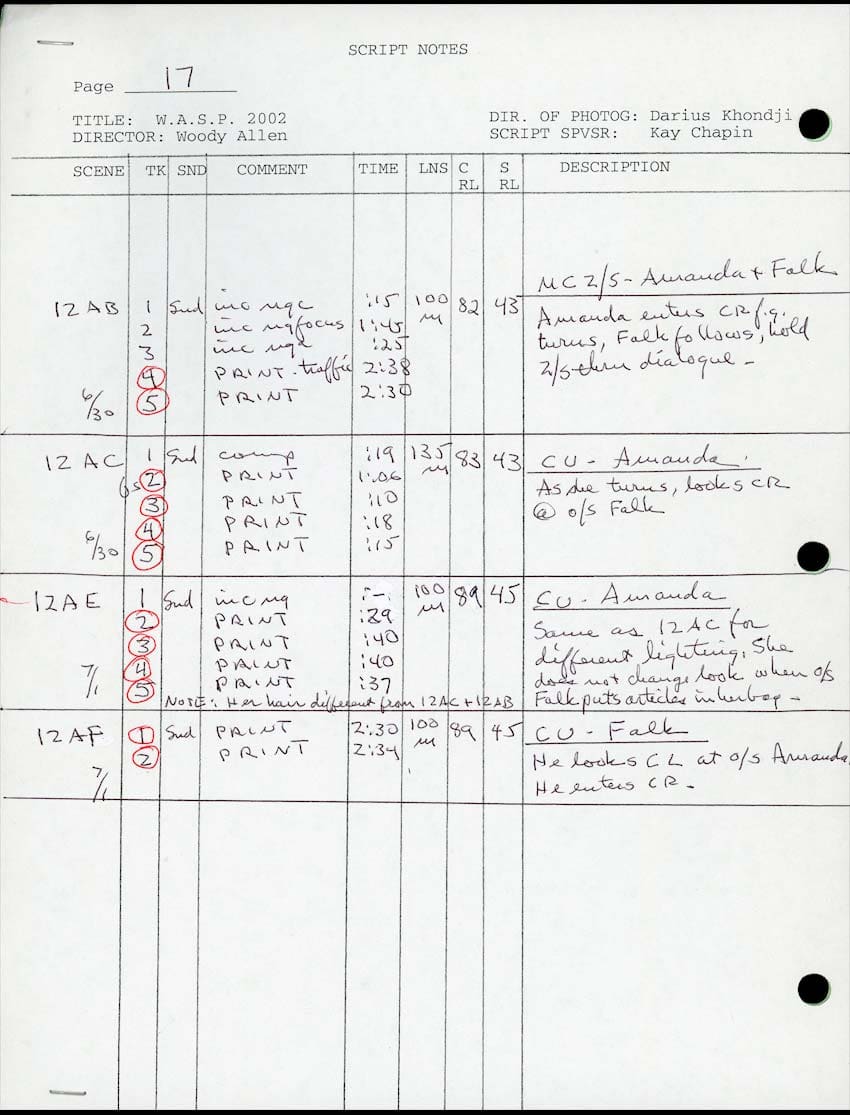 SCRIPT NOTES
Page 17
TITLE: W.A.S.P. 2002 DIR. OF PHOTOG: Darius Khondji
DIRECTOR: Woody Allen SCRIPT SPVSR: Kay Chapin
SCENE TK SND COMMENT TIME LNS C S DESCRIPTION
RL RL
MC 2/S - Amanda + Falk
12AB 1 Snd inc ngc :15 100 82 43 Amanda enters CR f.g.
2 inc ng focus 1:45 m turns, Falk follows, hold
3 inc nga :25 2/S thru dialogue -
4 PRINT - traffic 2:38
6/30 5 PRINT 2:30
12 AC 1 Snd comp :19 135 83 43 CU - Amanda
2 PRINT 1:06 m As she turns, looks CR
3 PRINT :10 @ o/s Falk
4 PRINT :18
6/30 5 PRINT :15
12AE 1 Snd inc ng :-. 100 89 45 CU - Amanda
2 PRINT :29 m Same as 12AC for
3 PRINT :40 different lighting, She
4 PRINT :40 does not change look when o/s
7/1 5 PRINT :37 Falk puts articles in her bag -
NOTE: Her hair different from 12AC + 12AB
12AF 1 Snd PRINT 2:30 100 89 45 CU - Falk
2 PRINT 2:34 m He looks CL at o/s Amanda,
7/1 He enters CR -